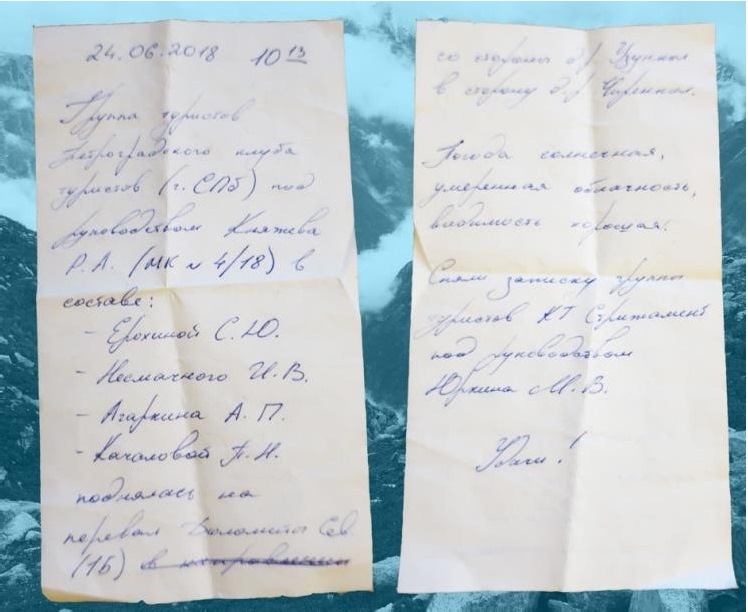 24.06.2018 10 13
Группа туристов
Петроградского клуба
туристов (г. СПб) под
руководством Княжева
Р.А. (МК № 4/18) в
составе:
- Ерохиной С.Ю.
- Несмачного И.В.
- Агаркина А.П.
- Качаловой П.Н.
поднялась на
перевал Доломиты Сев.
(1Б) в направлении
со стороны д.р.
в сторону д.р.
Погода солнечная,
умеренная облачность,
видимость хорошая.
Сняли записку группы
туристов КТ Стрижамент
под руководством
Юркина М.В.
Удачи!